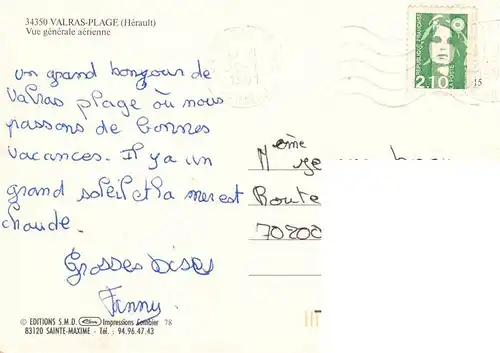 34350 VALRAS-PLAGE (Hérault)
Vue générale aérienne
un grand bonjour de
Valras plage où nous
passons de bonnes
vacances. Il y a un
grand soleil et la mer est
chaude.
Grosses bises
Fanny
RÉPUBLIQUE FRANÇAISE
2,10
LA POSTE
15
Mème
Route
70200
© EDITIONS S.M.D. Impressions Combier 78
83120 SAINTE-MAXIME - Tél. : 94.96.47.43